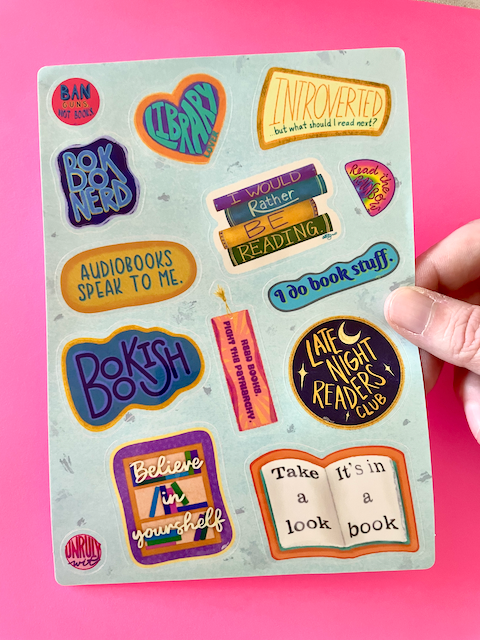 BAN
GUNS,
NOT BOOKS.
LIBRARY
LOVER
INTROVERTED
...but what should I read next?
BOOK
NERD
I WOULD
Rather
BE
READING.
Read the
AUDIOBOOKS
SPEAK TO ME.
I do book stuff.
BOOKISH
READ BOOKS.
FIGHT THE PATRIARCHY.
LATE
NIGHT
READERS
CLUB
Believe
in
yourshelf
Take
a
look
It's in
a
book
UNRULY
wit